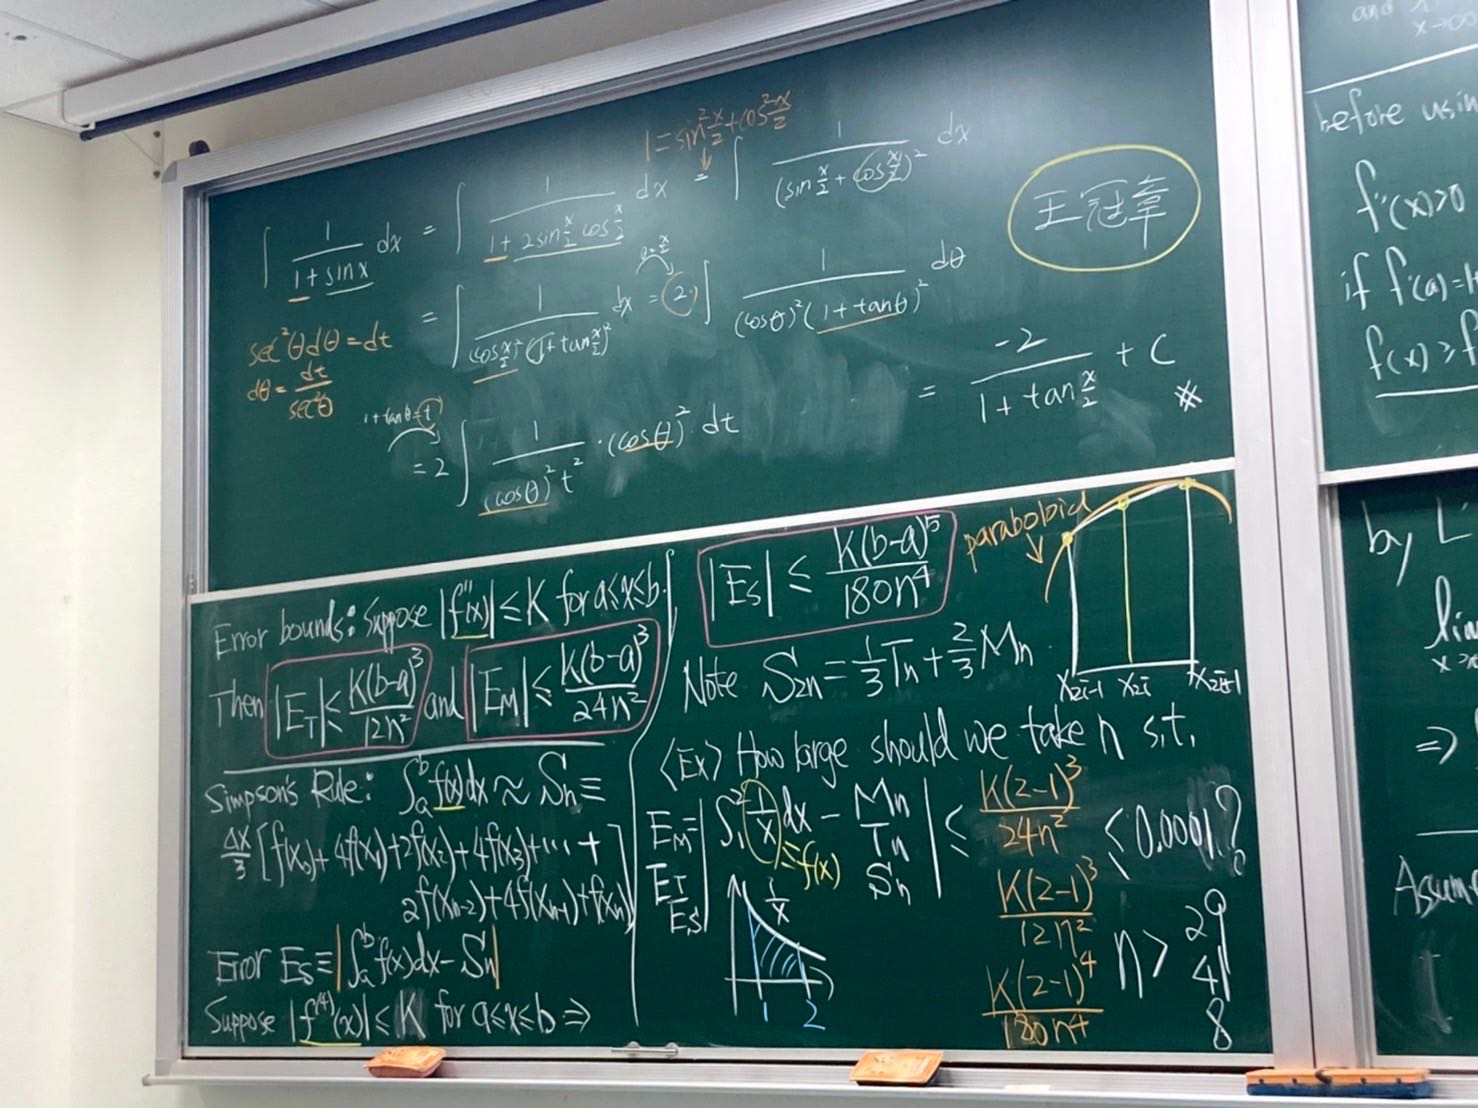 1 = sin²x/2 + cos²x/2
∫ 1/(1 + sin x) dx = ∫ 1/(1 + 2 sin x/2 cos x/2) dx = ∫ 1/(sin x/2 + cos x/2)² dx
王冠章
= ∫ 1/((cos x/2)² (1 + tan x/2)²) dx = 2·∫ 1/((cosθ)² (1 + tanθ)²) dθ
θ = x/2
sec²θ dθ = dt
dθ = dt/sec²θ
1 + tanθ = t
= 2 ∫ 1/((cosθ)² t²) · (cosθ)² · dt
= -2/(1 + tan x/2) + C
Error bounds: Suppose |f''(x)| ≤ K for a ≤ x ≤ b.
Then |E_T| ≤ K(b-a)³/12n² and |E_M| ≤ K(b-a)³/24n²
Simpson's Rule: ∫_a^b f(x)dx ≈ S_n ≡
Δx/3 [f(x₀) + 4f(x₁) + 2f(x₂) + 4f(x₃) + ... +
2f(x_{n-2}) + 4f(x_{n-1}) + f(x_n)]
Error E_S ≡ |∫_a^b f(x)dx - S_n|
Suppose |f⁽⁴⁾(x)| ≤ K for a ≤ x ≤ b ⇒
|E_S| ≤ K(b-a)⁵/180n⁴
paraboloid
x_{2i-1} x_{2i} x_{2i+1}
Note S_{2n} = 1/3 T_n + 2/3 M_n
<Ex> How large should we take n s.t.
E_M = |∫_1^2 1/x dx - M_n| ≤ K(2-1)³/24n² ≤ 0.0001?
E_T T_n K(2-1)³/12n²
E_S S_n K(2-1)⁴/180n⁴
≡ f(x)
1/x
1 2
n > 29
41
8
before using
f'(x) > 0
if f'(a) =
f(x) ≥ f
by L'
lim
⇒
Assum